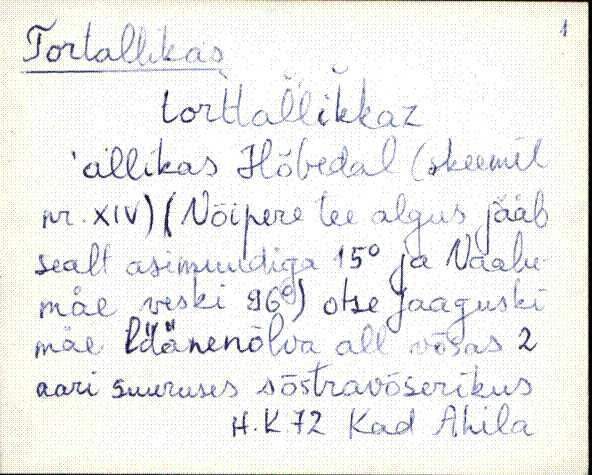 1
Tortallikas
torttallikkaz
'allikas Hõbedal (skeemil
nr. XIV) (Nõipere tee algus jääb
sealt asimuudiga 15° ja Naabu-
mäe veski 96°) otse Jaaguski
mäe läänenõlva all võsas 2
aari suuruses sõstravõserikus
H.K 72 Kad Ahila